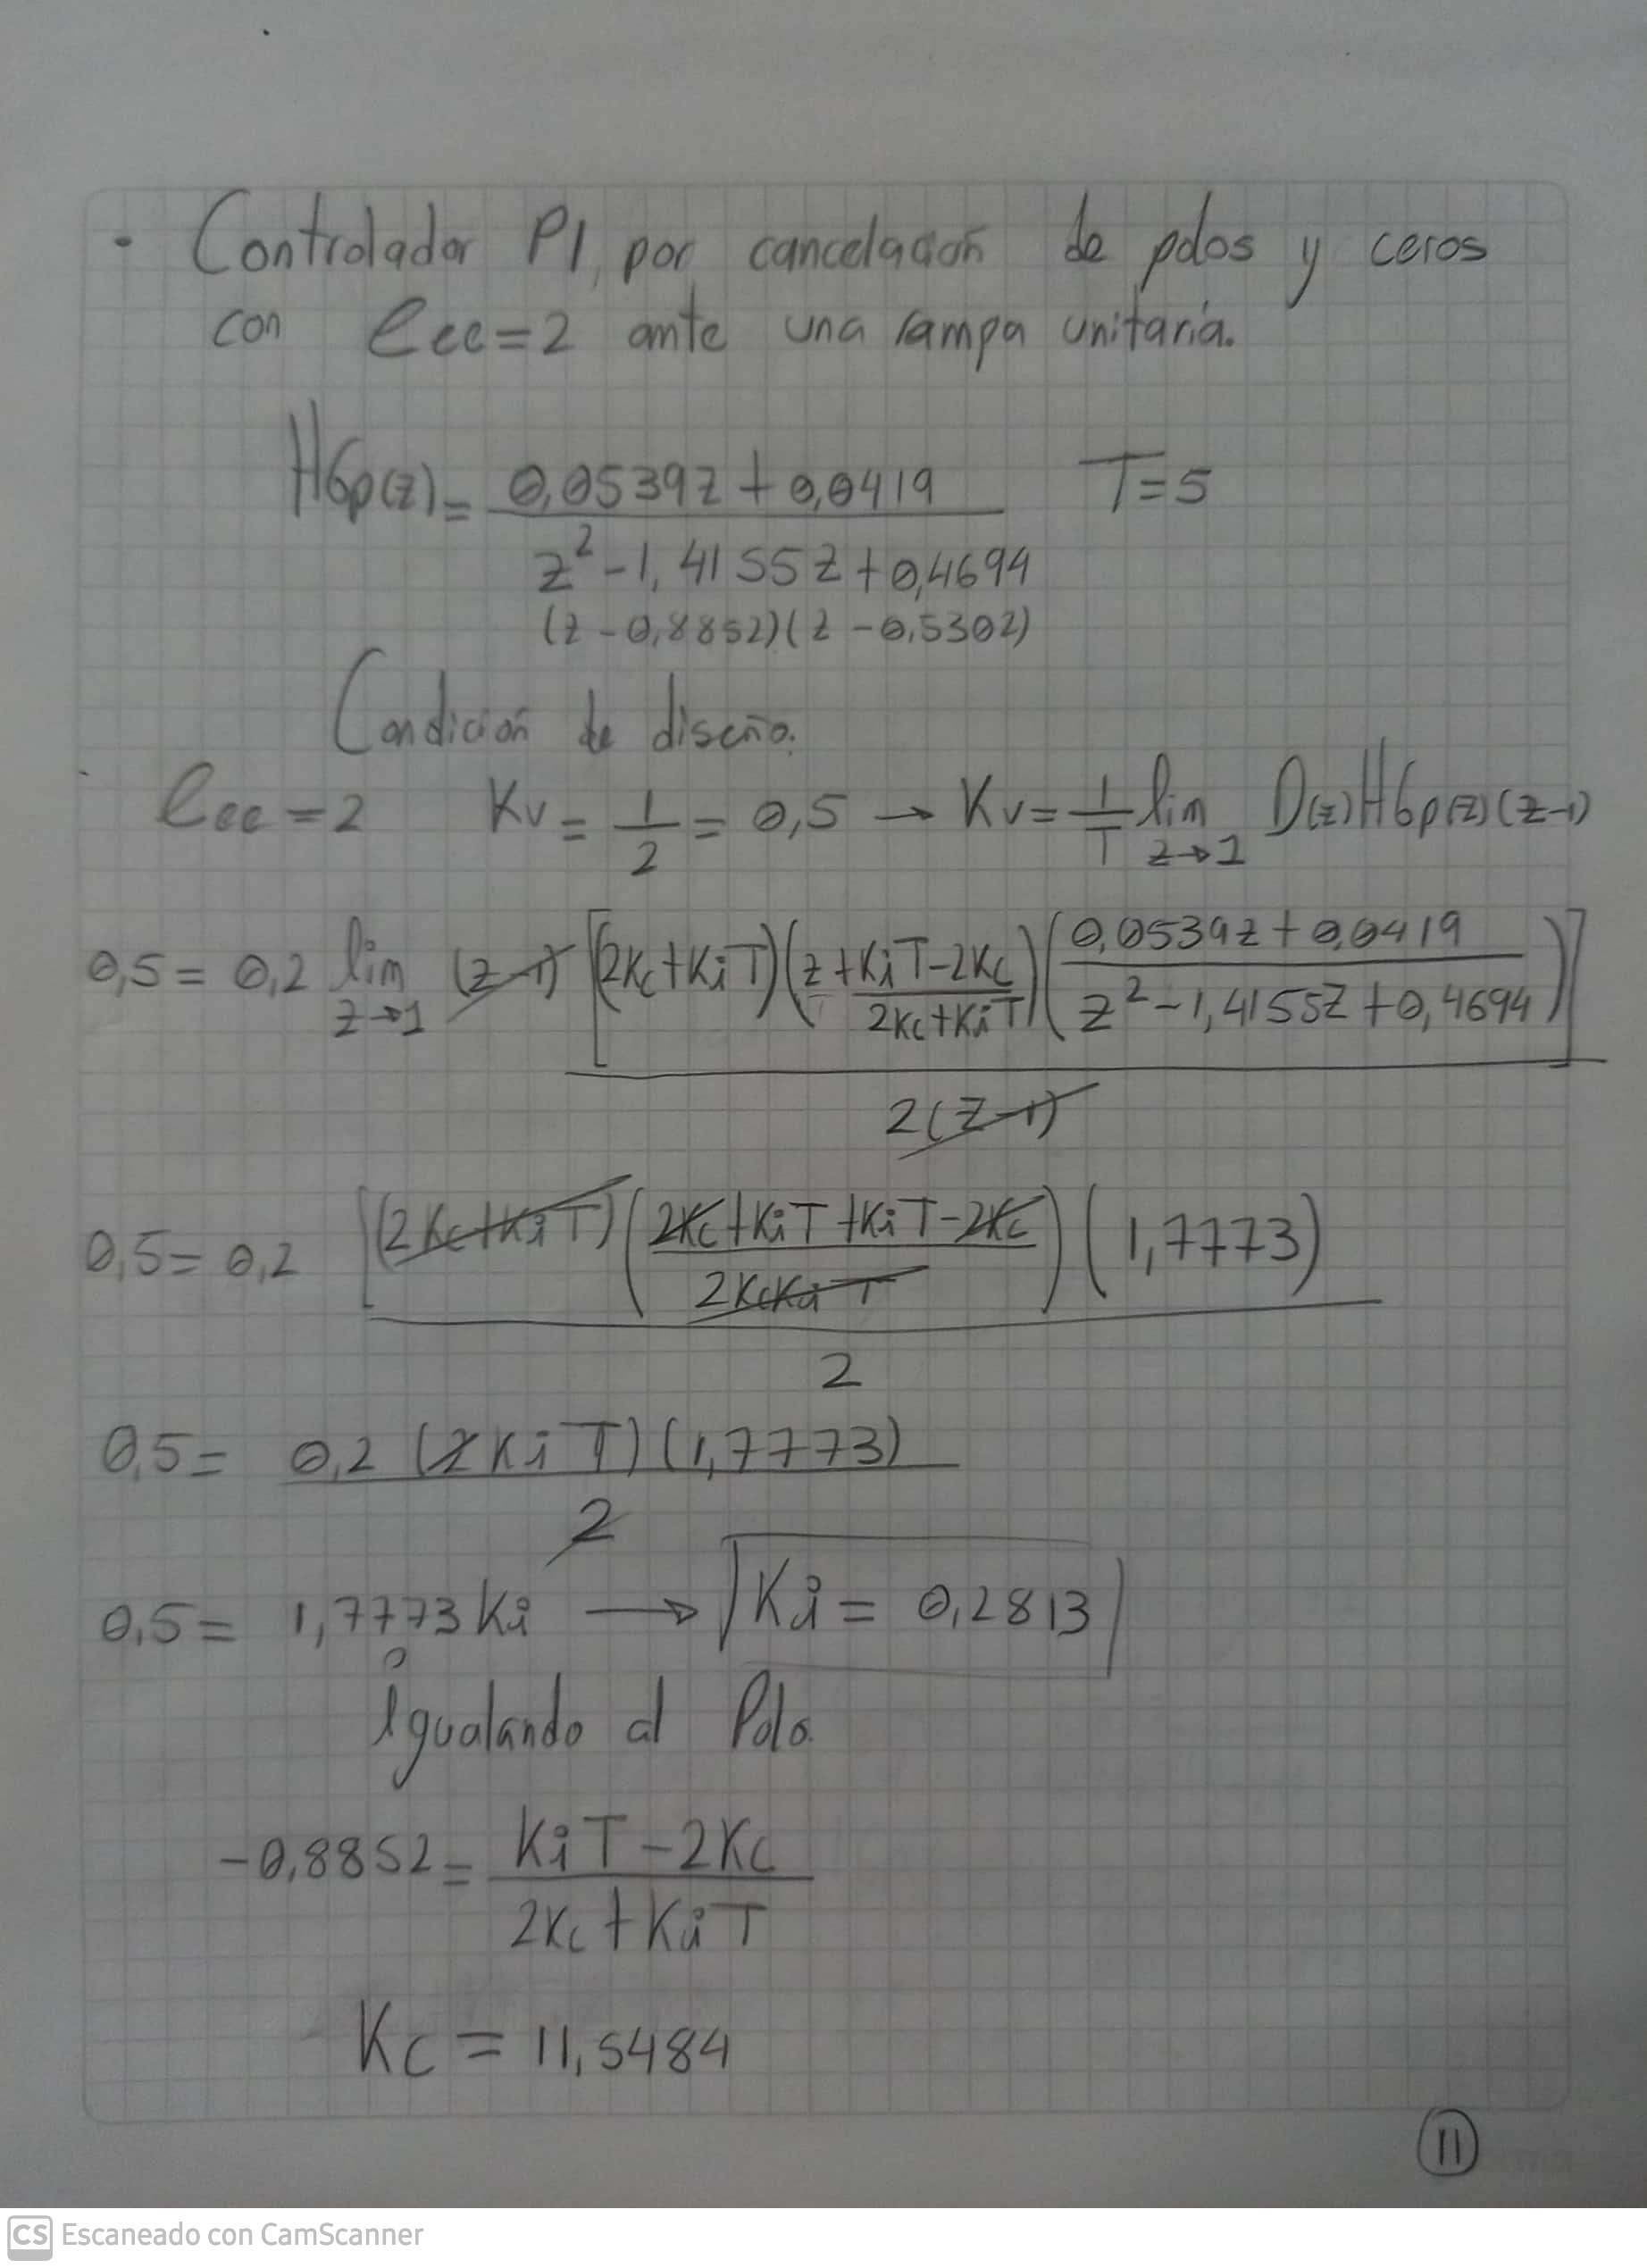 • Controlador PI, por cancelación de polos y ceros
con ess=2 ante una rampa unitaria.
HGp(z) = (0,0539z + 0,0419) / (z² - 1,4155z + 0,4694) T=5
(z - 0,8852)(z - 0,5302)
Condición de diseño.
ess=2 Kv = 1/2 = 0,5 → Kv = 1/T lim z→1 D(z)HGp(z)(z-1)
0,5 = 0,2 lim z→1 (z-1) [(2Kc+KiT)(z + (KiT-2Kc)/(2Kc+KiT))((0,0539z + 0,0419)/(z² - 1,4155z + 0,4694))] / 2(z-1)
0,5 = 0,2 [(2Kc+KiT)((2Kc+KiT+KiT-2Kc)/(2KcKiT))(1,7773)] / 2
0,5 = 0,2 (2KiT)(1,7773) / 2
0,5 = 1,7773Ki → Ki = 0,2813
Igualando al Polo.
-0,8852 = (KiT - 2Kc) / (2Kc + KiT)
Kc = 11,5484
11
CS Escaneado con CamScanner